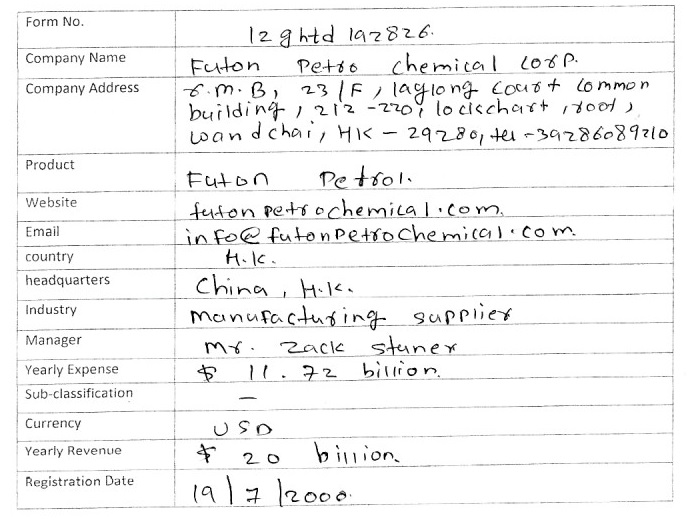 Form No. 12 ghtd 192826.
Company Name Futon Petro chemical corp.
Company Address r.m.B, 23/F, laglong court common
building, 212-220, lockschart, root,
wandchai, HK - 29280, tel - 39286089210
Product Futon Petrol.
Website futonpetrochemical.com.
Email info@futonPetrochemical.com.
country H.K.
headquarters China, H.K.
Industry manufacturing supplier
Manager mr. zack stuner
Yearly Expense $ 11.72 billion.
Sub-classification —
Currency USD
Yearly Revenue $ 20 billion.
Registration Date 19/7/2000.